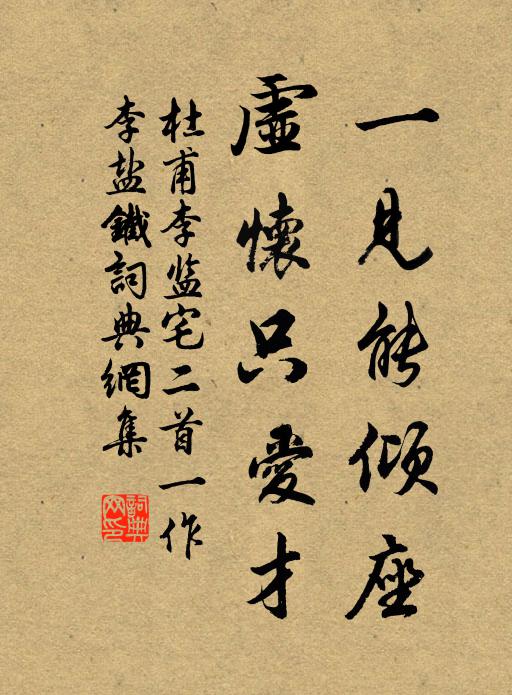 一見能傾座
虛懷只愛才
杜甫李监宅二首一作
李盐鐵詞典網集
詞典網印